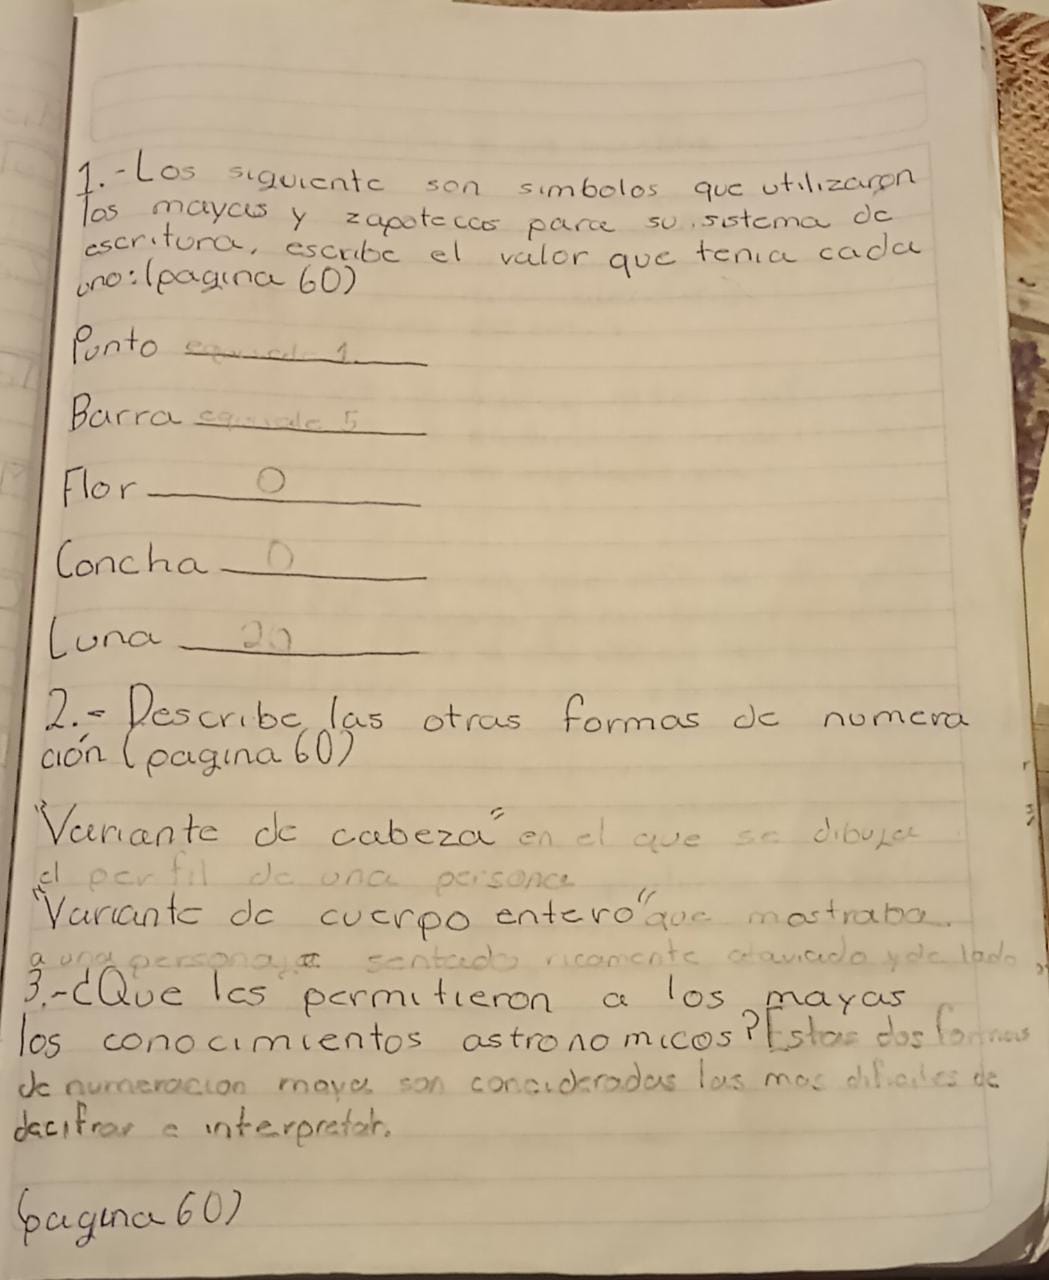 1.-Los siguiente son simbolos que utilizaron
los mayas y zapotecas para su sistema de
escritura, escribe el valor que tenia cada
uno:(pagina 60)
Punto equivale 1
Barra equivale 5
Flor 0
Concha 0
Luna 20
2.- Describe las otras formas de numera
ción (pagina 60)
"Variante de cabeza" en el que se dibuja
el perfil de una persona
"Variante de cuerpo entero" que mostraba
a una persona sentado ricamente ataviado y de lado,
3.-¿Que les permitieron a los mayas
los conocimientos astronomicos? Estas dos formas
de numeracion maya son concideradas las mas dificiles de
decifrar e interpretar.
(pagina 60)